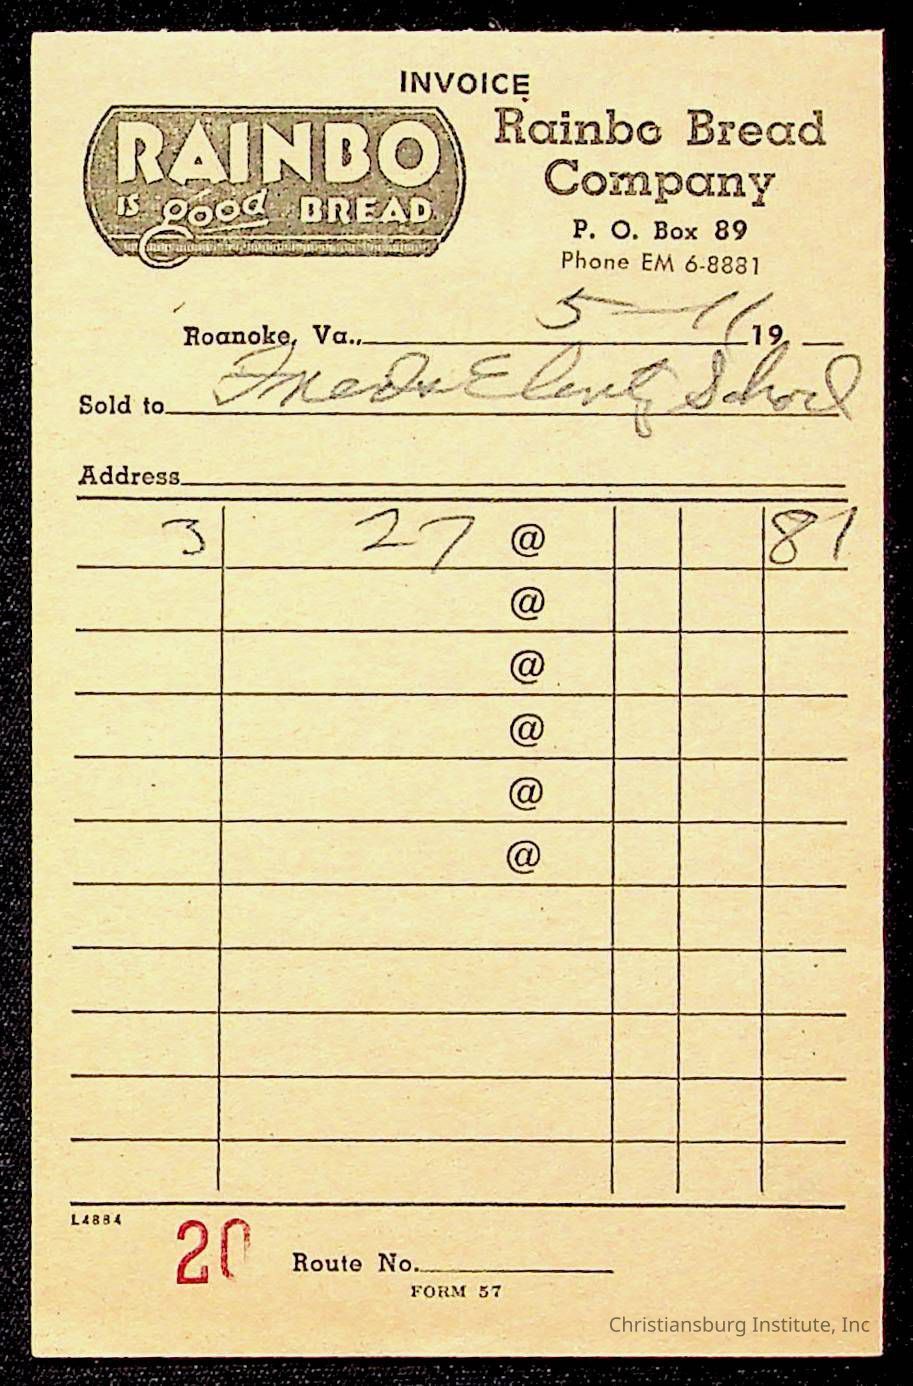 INVOICE
RAINBO
IS good BREAD
Rainbo Bread
Company
P. O. Box 89
Phone EM 6-8881
5-11
Roanoke, Va., 19
Sold to School
Address
3 27 @ 81
@
@
@
@
@
L4884
20 Route No.
FORM 57
Christiansburg Institute, Inc